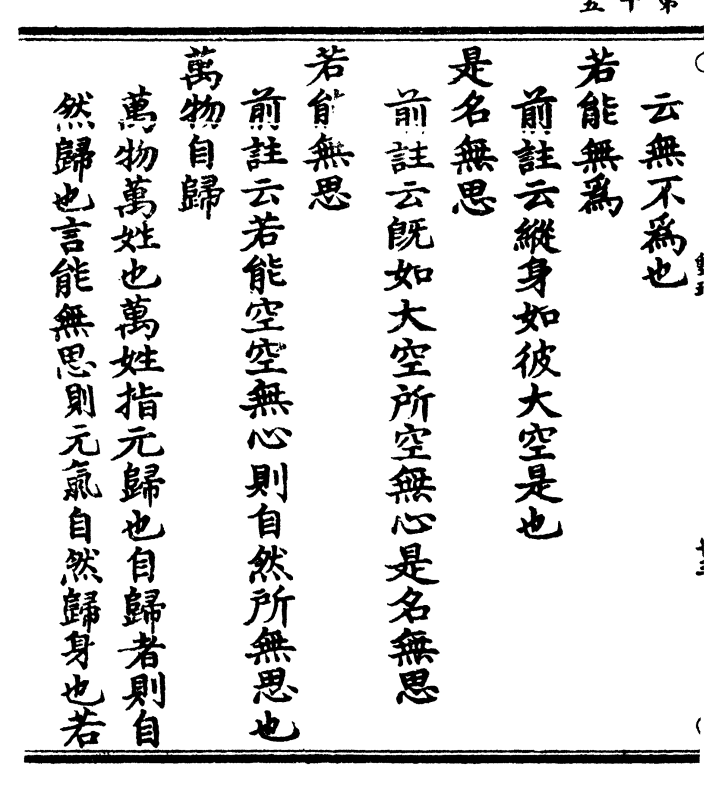 第十五
云無不爲也
若能無爲
前註云縱身如彼大空是也
是名無思
前註云旣如大空所空無心是名無思
若能無思
前註云若能空空無心則自然所無思也
萬物自歸
萬物萬姓也萬姓指元歸也自歸者則自
然歸也言能無思則元氣自然歸身也若